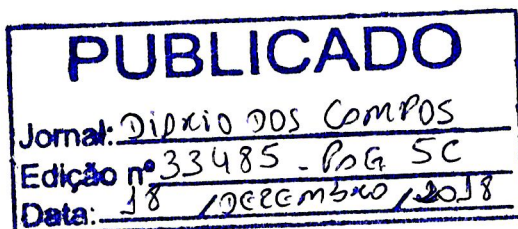 PUBLICADO
Jornal: DIÁRIO DOS CAMPOS
Edição nº 33485 - PAG 5C
Data: 18 / DEZEMBRO / 2018